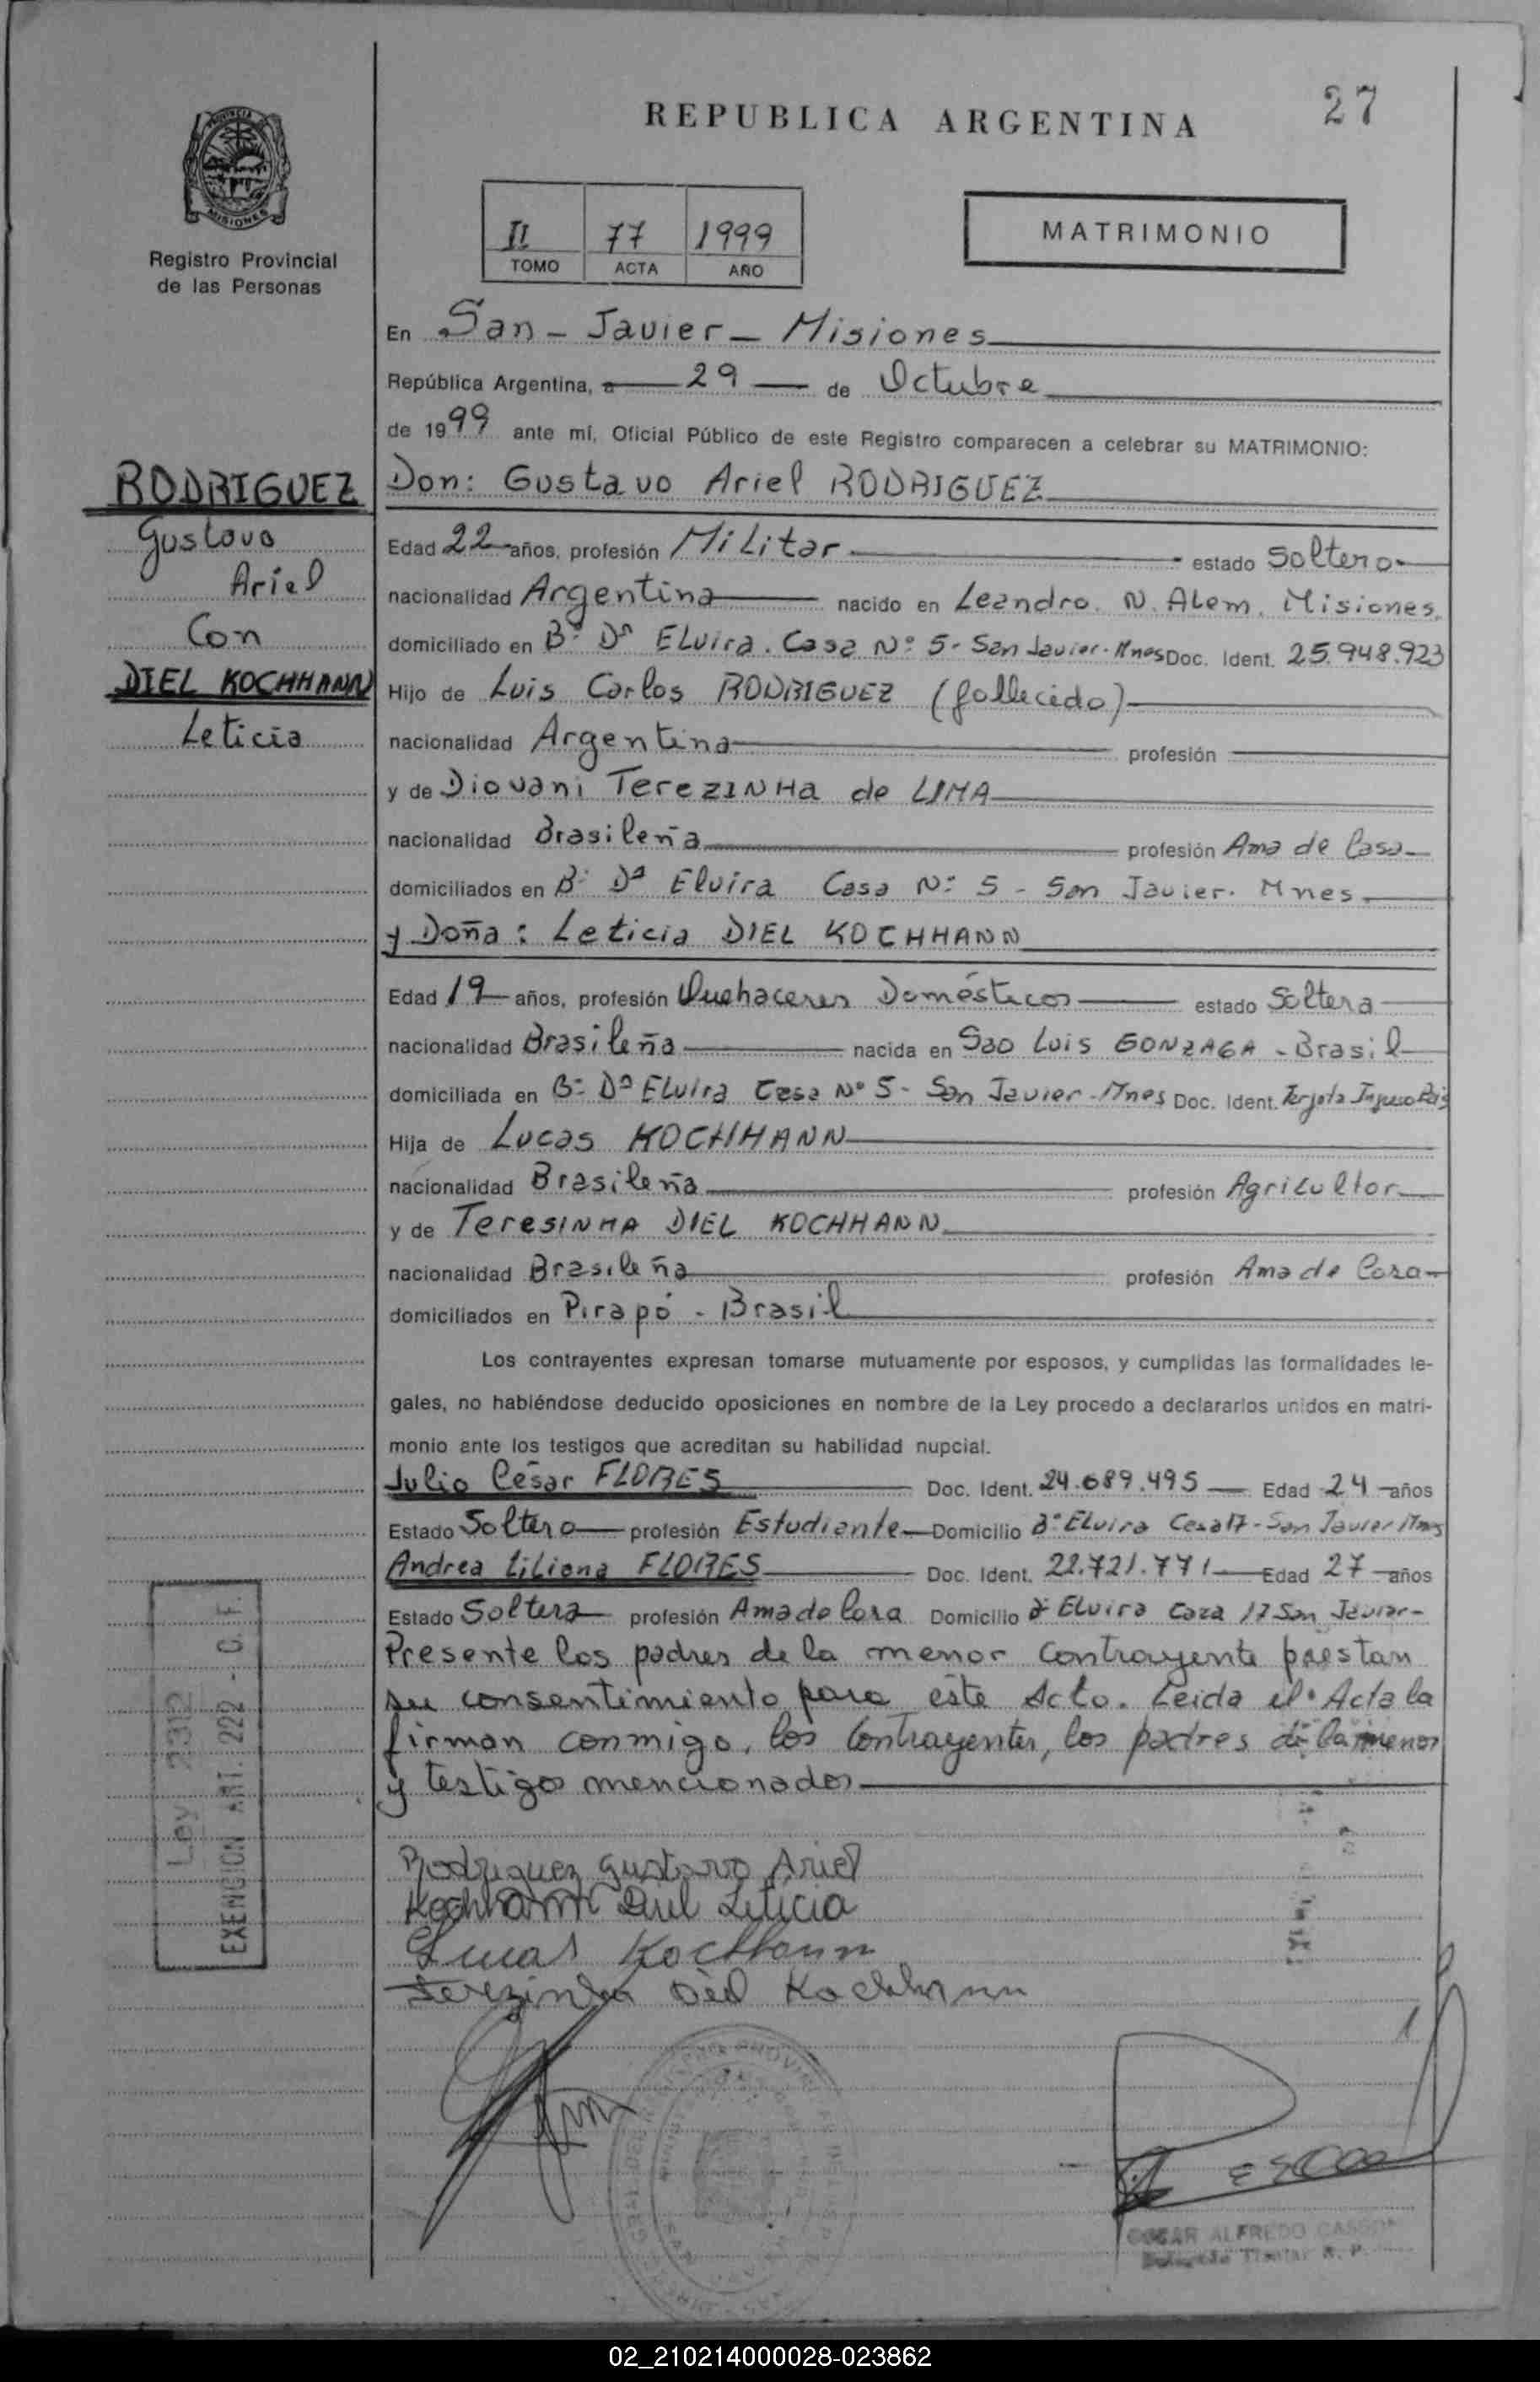 REPUBLICA ARGENTINA
27
PROVINCIA
MISIONES
Registro Provincial
de las Personas
II 77 1999
TOMO ACTA AÑO
MATRIMONIO
En San - Javier - Misiones
República Argentina, a 29 de Octubre
de 1999 ante mí, Oficial Público de este Registro comparecen a celebrar su MATRIMONIO:
RODRIGUEZ
Gustavo
Ariel
Con
DIEL KOCHHANN
Leticia
Don: Gustavo Ariel RODRIGUEZ
Edad 22 años, profesión Militar estado Soltero
nacionalidad Argentina nacido en Leandro. N. Alem. Misiones.
domiciliado en B° Dª Elvira. Casa N° 5 - San Javier. Mnes Doc. Ident. 25.948.923
Hijo de Luis Carlos RODRIGUEZ (fallecido)
nacionalidad Argentina profesión
y de Diovani TerezINHa de LIMA
nacionalidad Brasileña profesión Ama de Casa
domiciliados en B° Dª Elvira Casa N° 5 - San Javier. Mnes
y Doña: Leticia DIEL KOCHHANN
Edad 19 años, profesión Quehaceres Domésticos estado Soltera
nacionalidad Brasileña nacida en Sao Luis GONZAGA - Brasil
domiciliada en B° Dª Elvira Casa N° 5 - San Javier - Mnes Doc. Ident. Tarjeta Ingreso Pais
Hija de Lucas KOCHHANN
nacionalidad Brasileña profesión Agricultor
y de TeresINHA DIEL KOCHHANN
nacionalidad Brasileña profesión Ama de Casa
domiciliados en Pirapó - Brasil
Los contrayentes expresan tomarse mutuamente por esposos, y cumplidas las formalidades le-
gales, no habiéndose deducido oposiciones en nombre de la Ley procedo a declararlos unidos en matri-
monio ante los testigos que acreditan su habilidad nupcial.
Julio César FLORES Doc. Ident. 24.689.495 Edad 24 años
Estado Soltero profesión Estudiante Domicilio B° Elvira Casa 17 - San Javier Mnes
Andrea Liliana FLORES Doc. Ident. 22.721.771 Edad 27 años
Estado Soltera profesión Ama de Casa Domicilio B° Elvira Casa 17 San Javier -
Presente los padres de la menor contrayente prestan
su consentimiento para este Acto. Leida el Acta la
firman conmigo, los Contrayentes, los padres de la menor
y testigos mencionados
Ley 2312
EXENCION ART. 222 - C. F.
Rodriguez Gustavo Ariel
Kochhann Diel Leticia
Lucas Kochhann
Terezinha Diel Kochhann
OSCAR ALFREDO
Titular R. P.
02_210214000028-023862